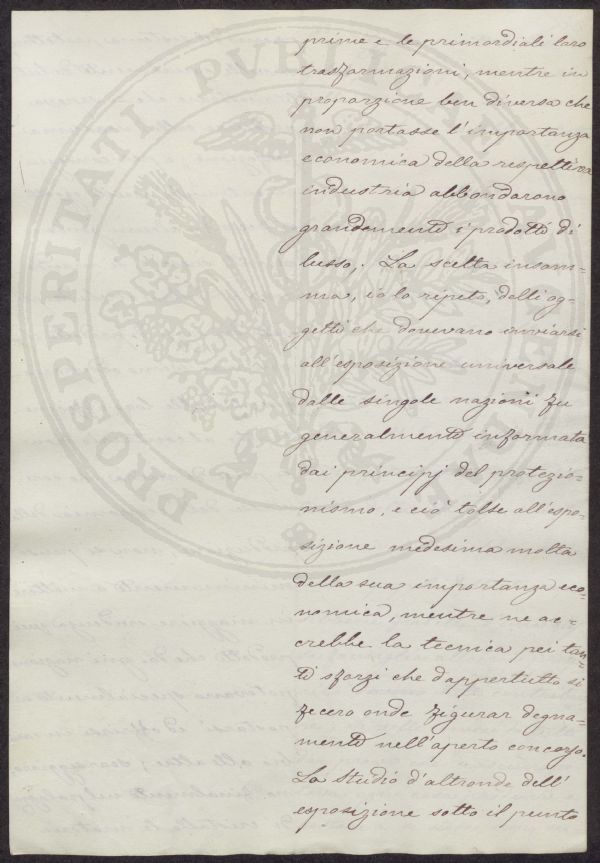 prime e le primordiali loro
trasformazioni, mentre in
proporzione ben diversa che
non portasse l'importanza
economica della respettiva
industria abbondarono
grandemente i prodotti di
lusso. La scelta insom-
ma, io lo ripeto, delli og-
getti che dovevano inviarsi
all'esposizione universale
dalle singole nazioni fu
generalmente informata
dai principj del protezio-
nismo, e ciò tolse all'espo-
sizione medesima molta
della sua importanza eco-
nomica, mentre ne ac-
crebbe la tecnica pei tan-
ti sforzi che dappertutto si
fecero onde figurar degna-
mente nell'aperto concorso.
Lo studio d'altronde dell'
esposizione sotto il punto
PROSPERITATI PVBLICAE